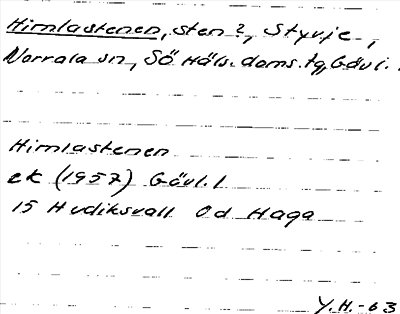 Himlastenen, sten?, Styvje,
Norrala sn, Sö Häls. doms. tg, Gävl. l
Himlastenen
ek (1957) Gävl. l
15 Hudiksvall 0d Haga
Y.H.-63